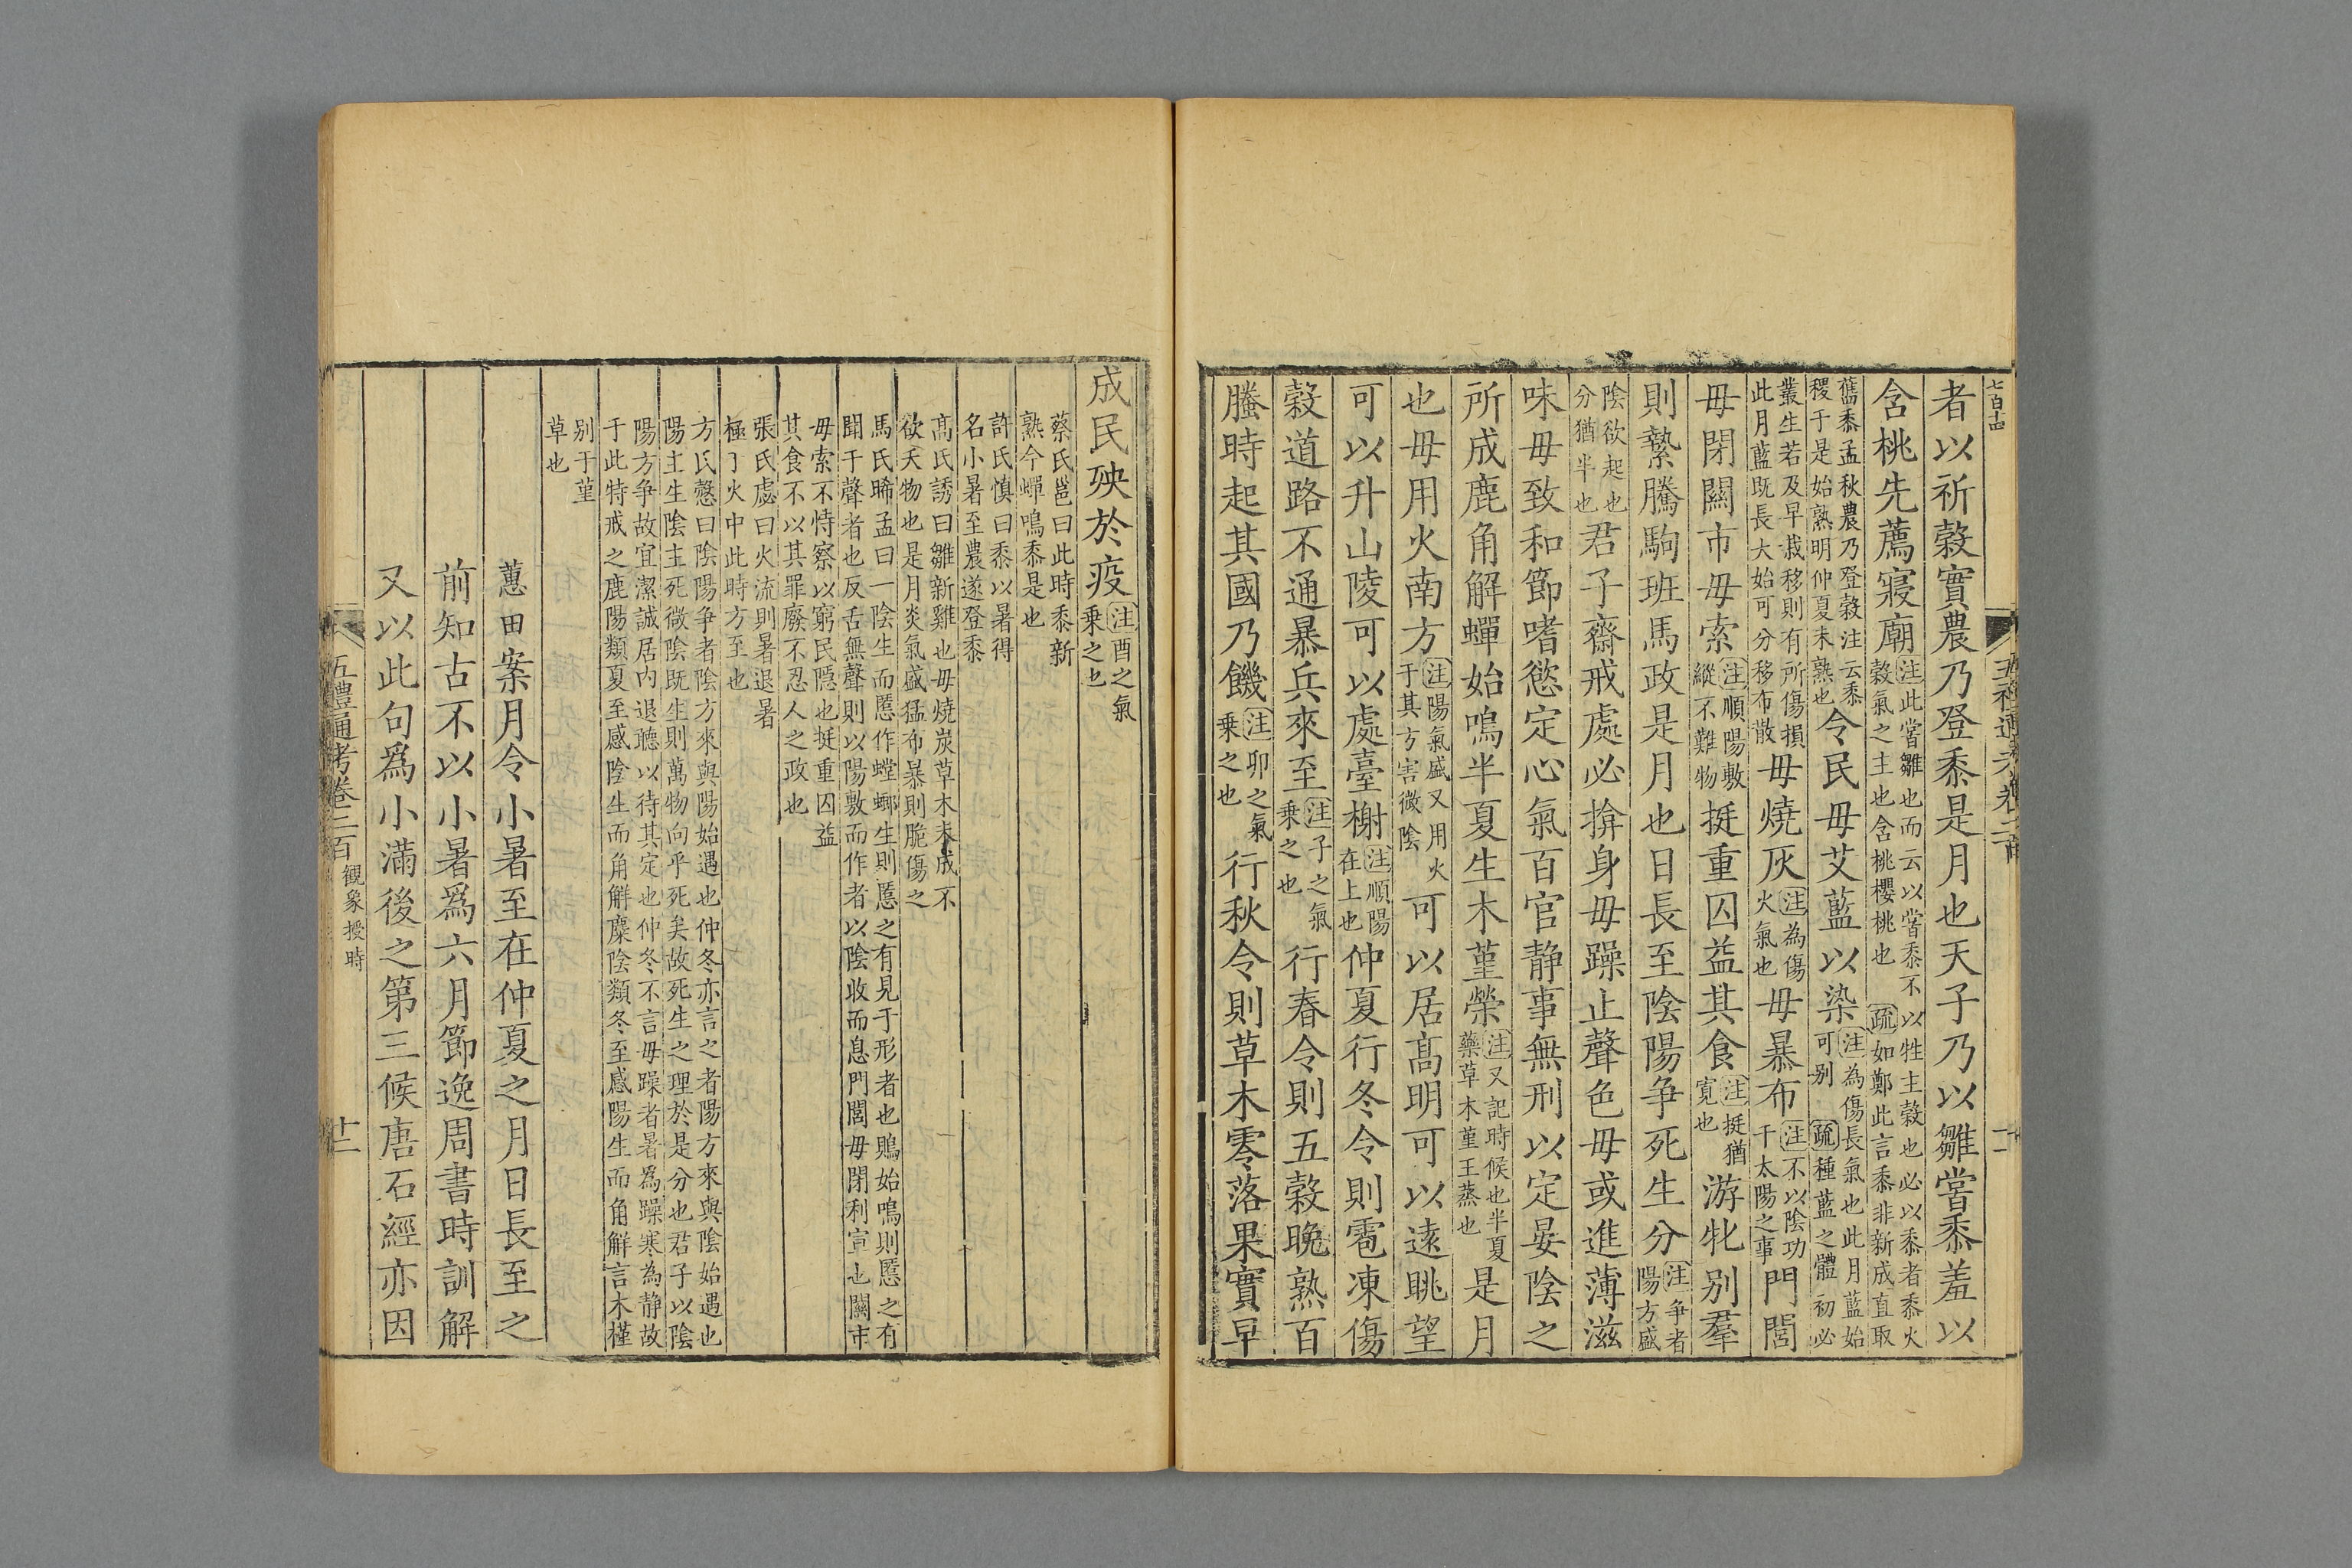 者以祈穀實農乃登黍是月也天子乃以雛嘗黍羞以
含桃先薦寢廟注此嘗雛也而云以嘗黍不以牲主穀也必以黍者黍火穀氣之主也含桃櫻桃也疏如鄭此言黍非新成直取
舊黍孟秋農乃登穀注云黍稷于是始熟明仲夏未熟也令民毋艾藍以染注為傷長氣也此月藍始可別疏種藍之體初必
叢生若及早栽移則有所傷損此月藍既長大始可分移布散毋燒灰注為傷火氣也毋暴布注不以陰功干太陽之事門閭
毋閉關市毋索注順陽敷縱不難物挺重囚益其食注挺猶寬也游牝别羣
則縶騰駒班馬政是月也日長至陰陽爭死生分注爭者陽方盛
陰欲起也分猶半也君子齋戒處必揜身毋躁止聲色毋或進薄滋
味毋致和節嗜慾定心氣百官静事無刑以定晏陰之
所成鹿角解蟬始鳴半夏生木堇榮注又記時候也半夏藥草木堇王蒸也是月
也毋用火南方注陽氣盛又用火于其方害微陰可以居髙明可以遠眺望
可以升山陵可以處臺榭注順陽在上也仲夏行冬令則雹凍傷
穀道路不通暴兵來至注子之氣乗之也行春令則五穀晚熟百
螣時起其國乃饑注卯之氣乗之也行秋令則草木零落果實早
成民殃於疫注酉之氣乗之也
蔡氏邕曰此時黍新熟今蟬鳴黍是也
許氏慎曰黍以暑得名小暑至農遂登黍
髙氏誘曰雛新雞也毋燒炭草木未成不欲夭物也是月炎氣盛猛布暴則脆傷之
馬氏晞孟曰一陰生而慝作螳螂生則慝之有見于形者也鵙始鳴則慝之有聞于聲者也反舌無聲則以陽敷而作者以陰收而息門閭毋閉利宣也關市
毋索不恃察以窮民隱也挺重囚益其食不以其罪廢不忍人之政也
張氏虙曰火流則暑退暑極于火中此時方至也
方氏慤曰陰陽爭者陰方來與陽始遇也仲冬亦言之者陽方來與陰始遇也陽主生陰主死微陰既生則萬物向乎死矣故死生之理於是分也君子以陰
陽方爭故宜潔誠居内退聽以待其定也仲冬不言毋躁者暑為躁寒為静故于此特戒之鹿陽類夏至感陰生而角解麋陰類冬至感陽生而角解言木槿
别于堇草也
蕙田案月令小暑至在仲夏之月日長至之
前知古不以小暑為六月節逸周書時訓解
又以此句為小滿後之第三候唐石經亦因
五禮通考卷二百 觀象授時
十二